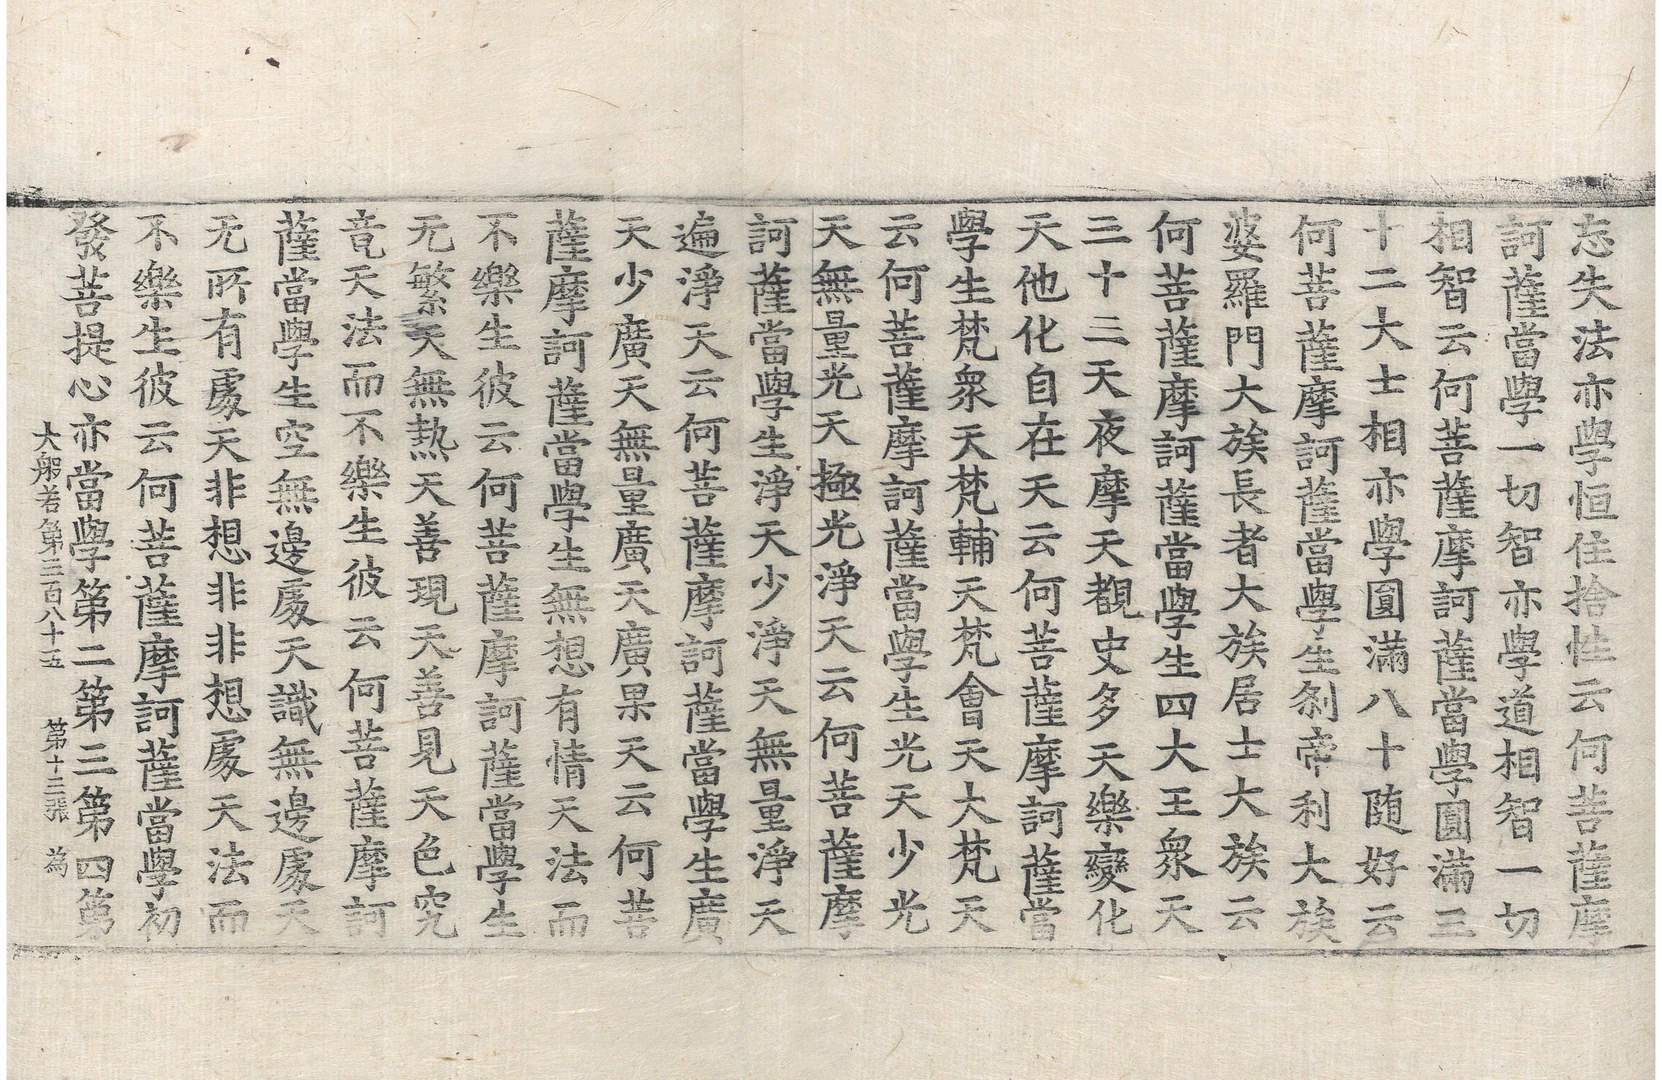 忘失法亦學恒住捨性云何菩薩摩
訶薩當學一切智亦學道相智一切
相智云何菩薩摩訶薩當學圓滿三
十二大士相亦學圓滿八十随好云
何菩薩摩訶薩當學生刹帝利大族
婆羅門大族長者大族居士大族云
何菩薩摩訶薩當學生四大王衆天
三十三天夜摩天覩史多天樂變化
天他化自在天云何菩薩摩訶薩當
學生梵衆天梵輔天梵會天大梵天
云何菩薩摩訶薩當學生光天少光
天無量光天極光淨天云何菩薩摩
訶薩當學生淨天少淨天無量淨天
遍淨天云何菩薩摩訶薩當學生廣
天少廣天無量廣天廣果天云何菩
薩摩訶薩當學生無想有情天法而
不樂生彼云何菩薩摩訶薩當學生
无繁天無熱天善現天善見天色究
竟天法而不樂生彼云何菩薩摩訶
薩當學生空無邊處天識無邊處天
无所有處天非想非非想處天法而
不樂生彼云何菩薩摩訶薩當學初
發菩提心亦當學第二第三第四第
大般若第三百八十五 第十三張 為